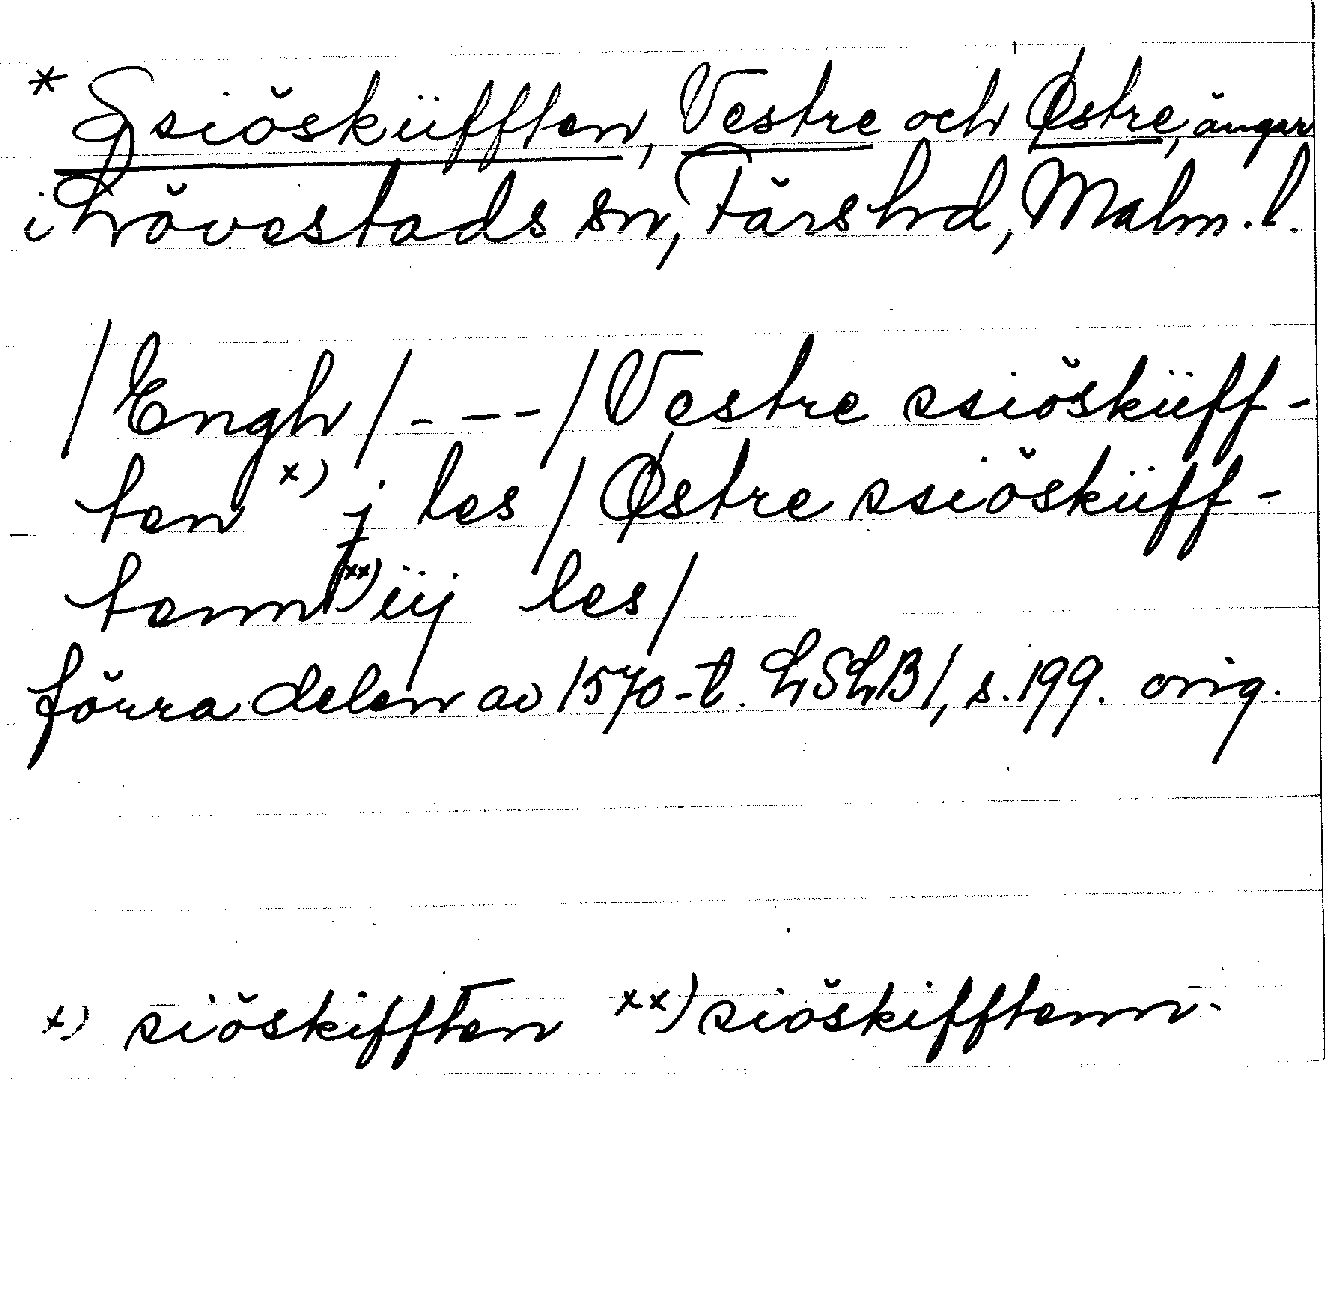 * Ssiöskiifften, Vestre och Østre, ängar
i Lövestads sn, Färs hd, Malm. l.
/ Engh / - - - / Vestre ssiöskiiff-
ten x) j les / Østre ssiöskiiff-
tenn xx) iij les /
förra delen av 1570-t. LSLB1, s. 199. orig.
x) siöskifften xx) siöskifftenn.